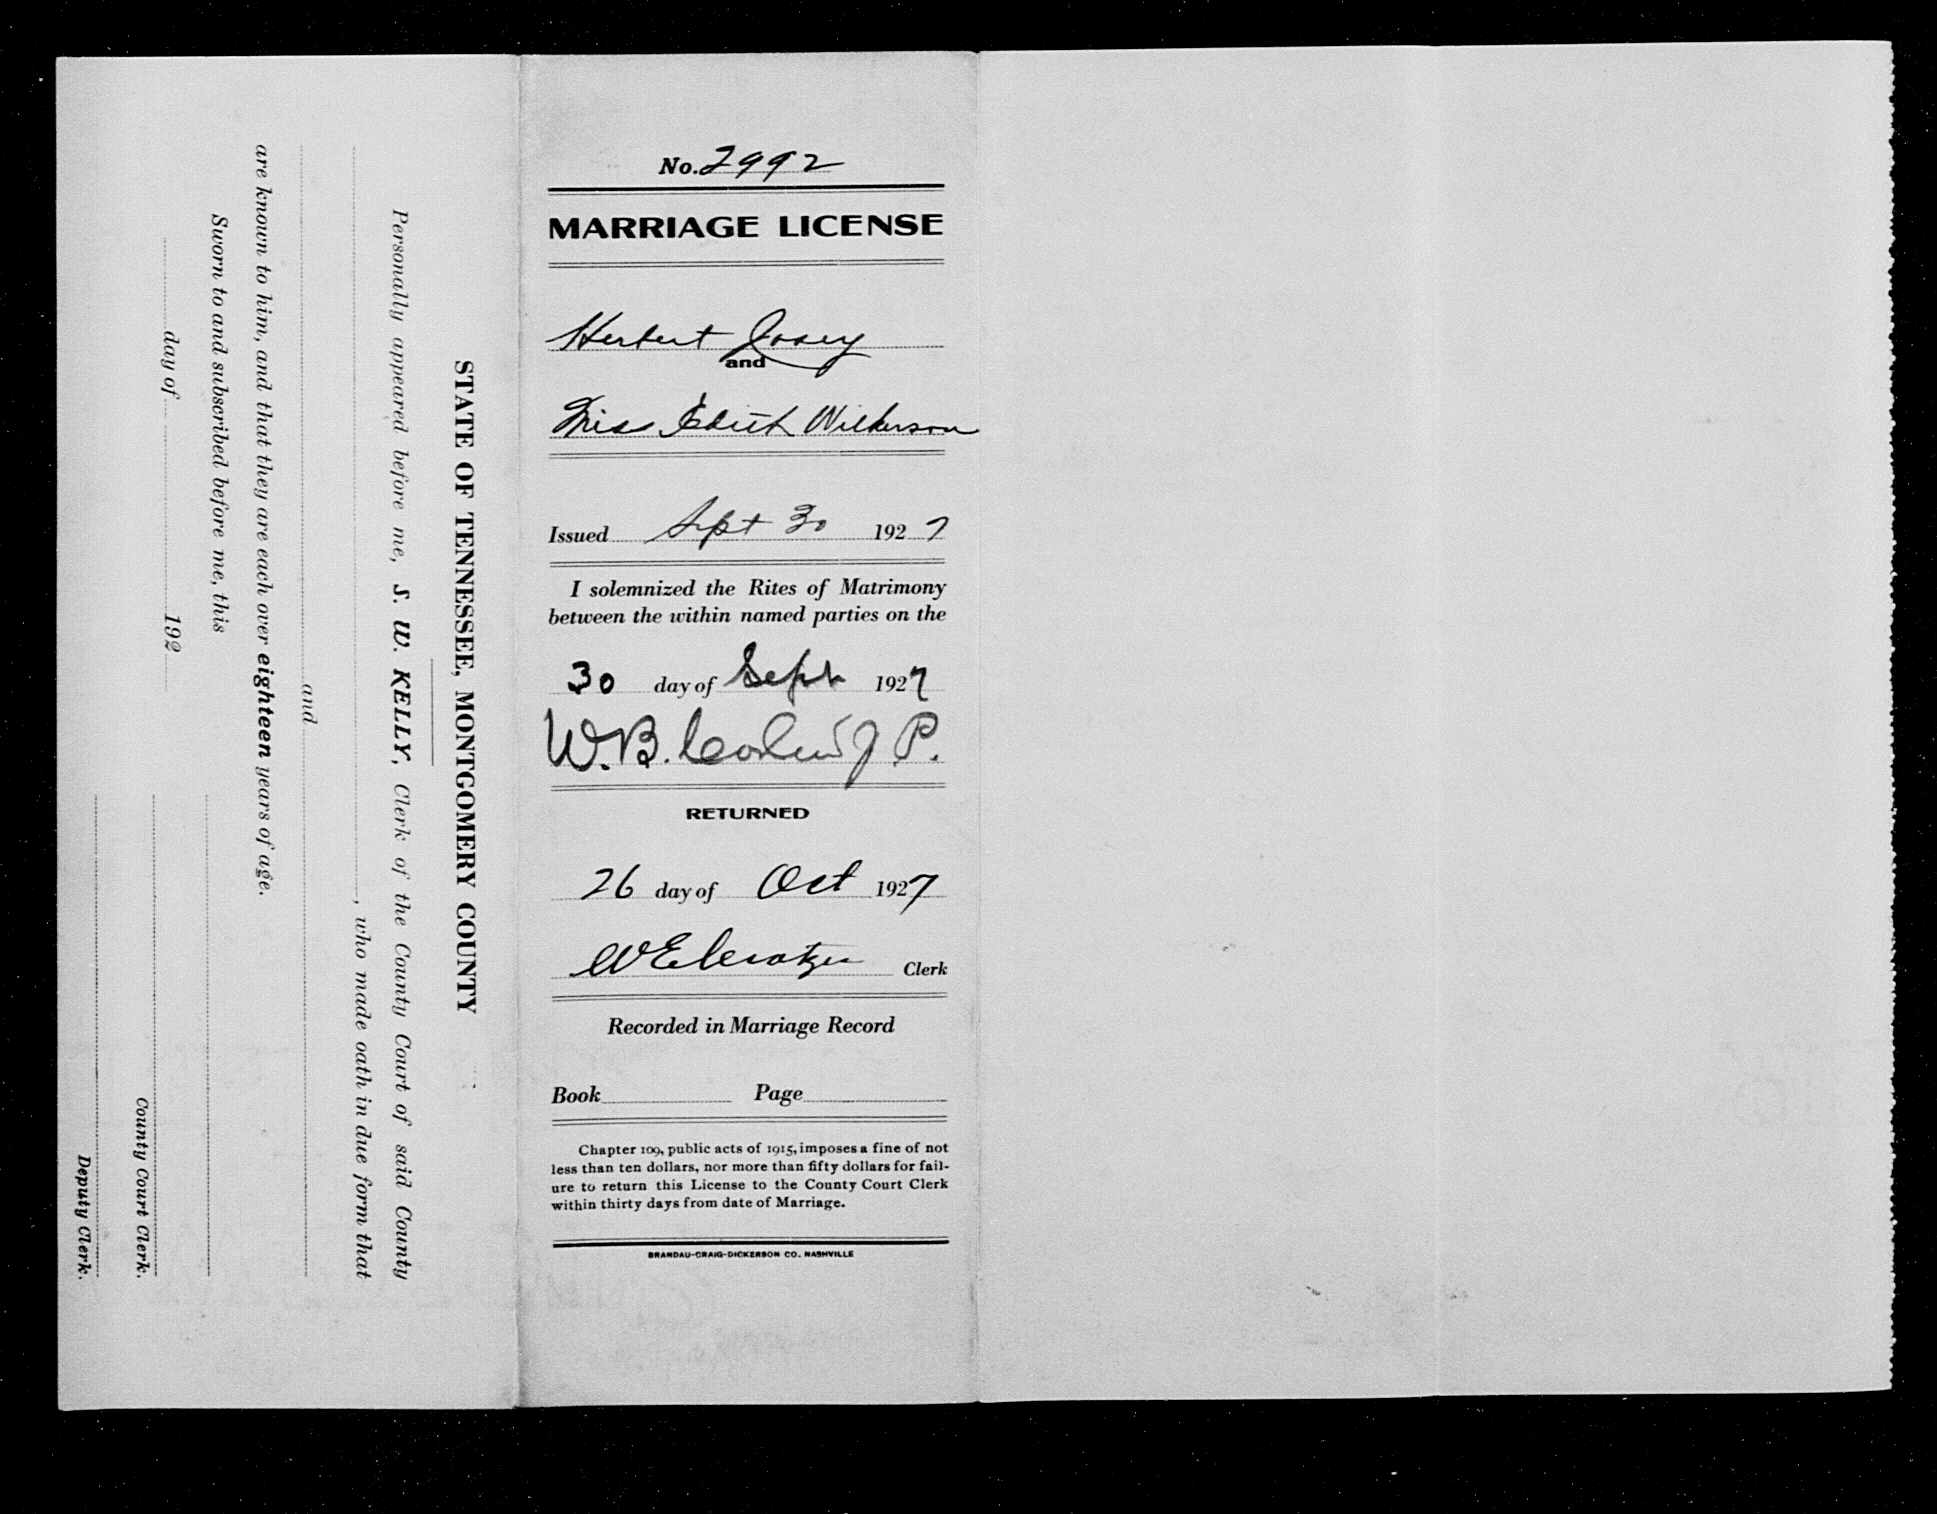 STATE OF TENNESSEE, MONTGOMERY COUNTY
Personally appeared before me, S. W. KELLY, Clerk of the County Court of said County
, who made oath in due form that
and
are known to him, and that they are each over eighteen years of age.
Sworn to and subscribed before me, this
day of 192
County Court Clerk.
Deputy Clerk.
No. 2992
MARRIAGE LICENSE
Herbert Josey
and
Miss Edith Wilkerson
Issued Sept 30 1927
I solemnized the Rites of Matrimony
between the within named parties on the
30 day of Sept 1927
W.B. J P.
RETURNED
26 day of Oct 1927
W E Clerk
Recorded in Marriage Record
Book Page
Chapter 109, public acts of 1915, imposes a fine of not
less than ten dollars, nor more than fifty dollars for fail-
ure to return this License to the County Court Clerk
within thirty days from date of Marriage.
BRANDAU-CRAIG-DICKERSON CO. NASHVILLE